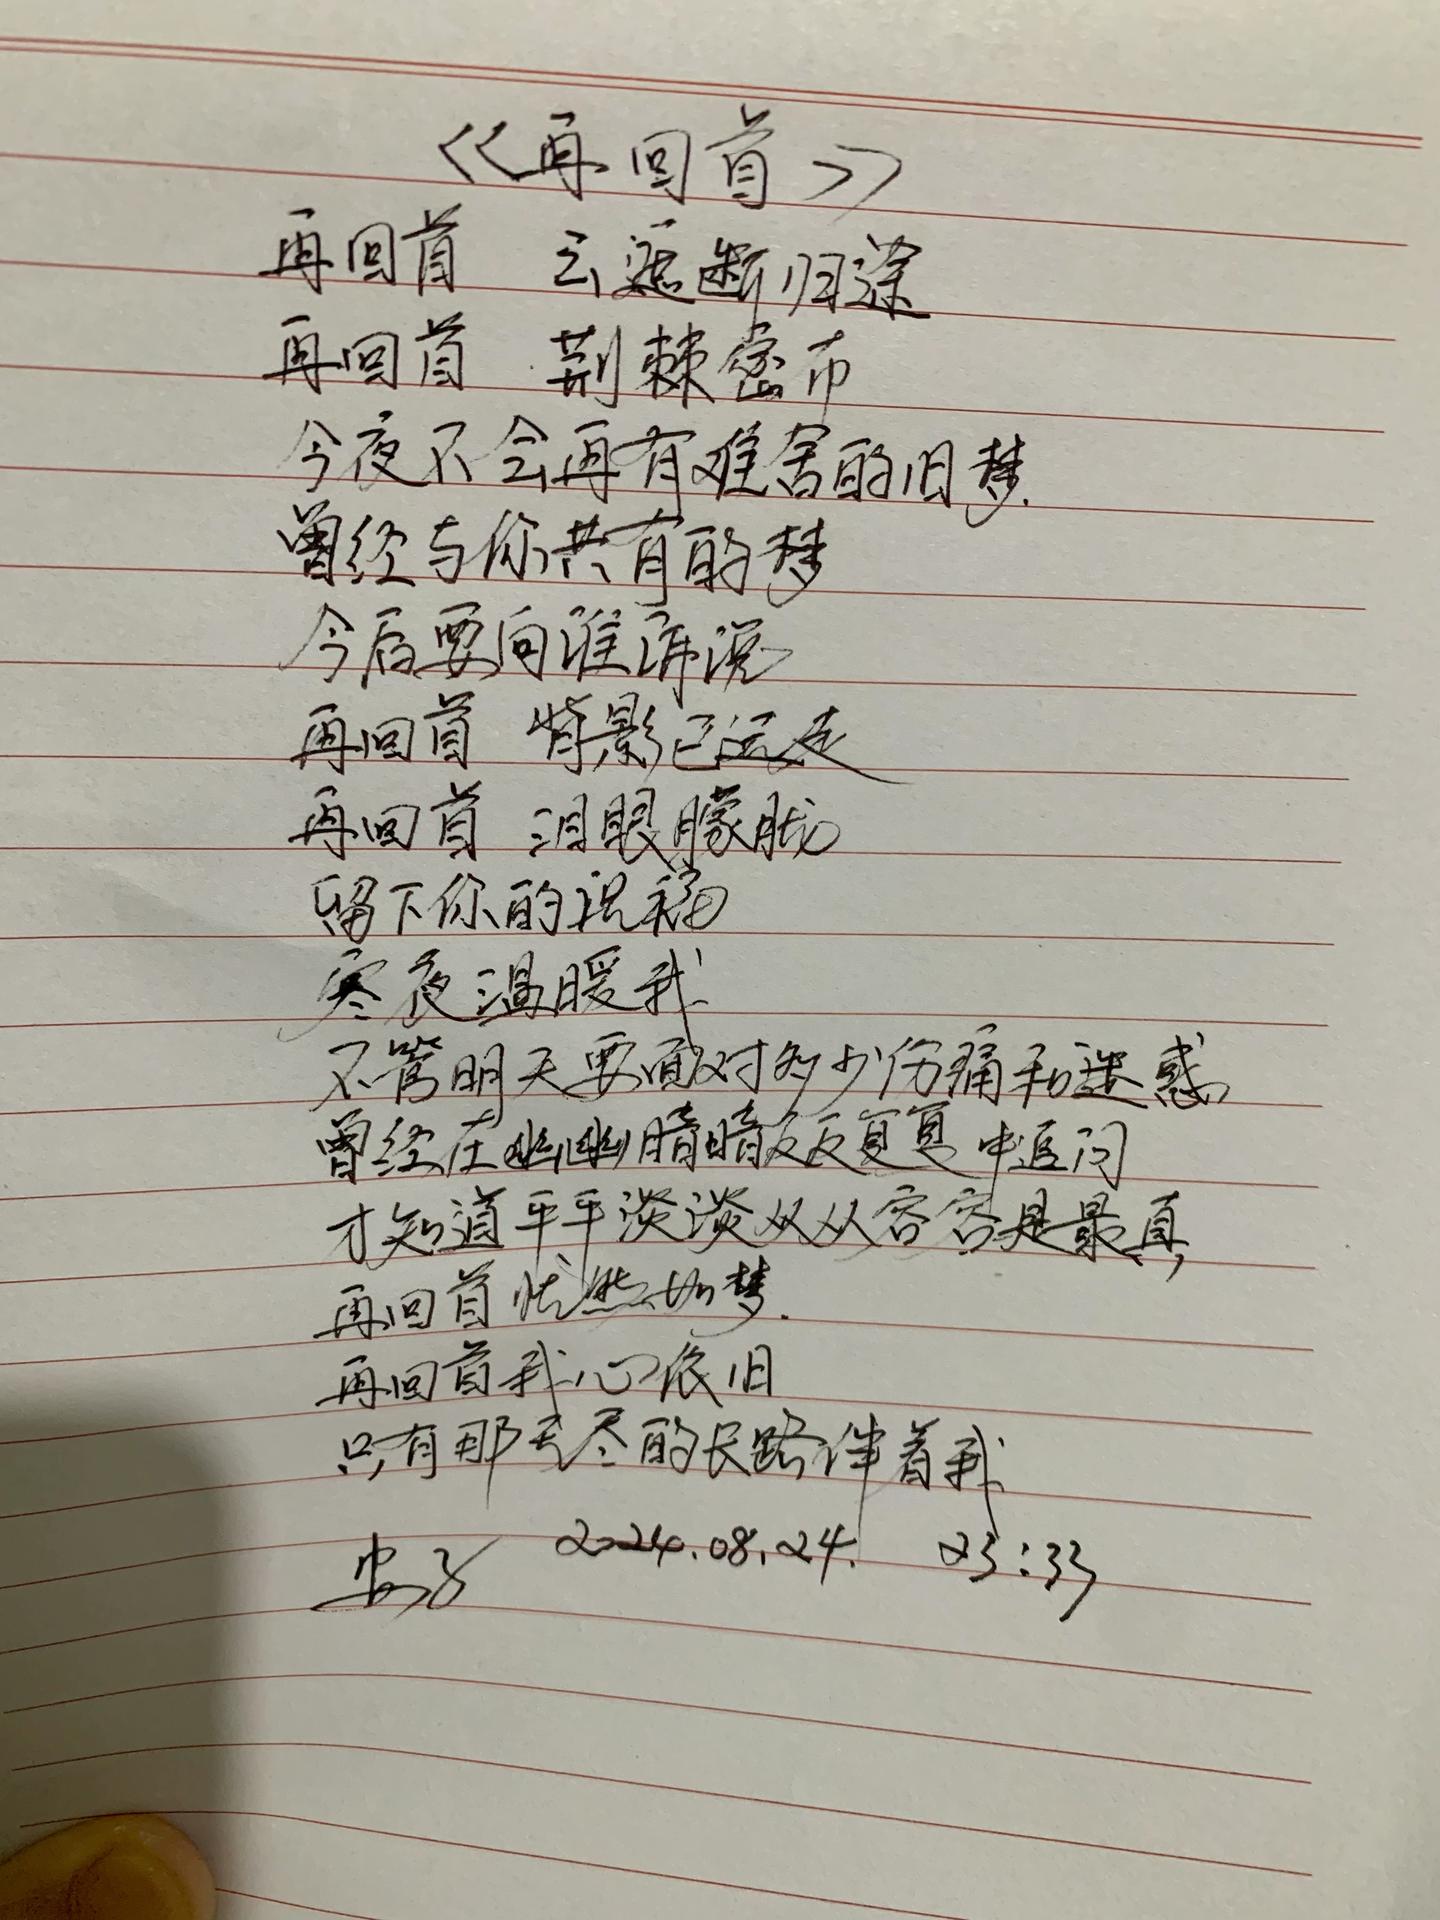 《再回首》
再回首 云遮断归途
再回首 荆棘密布
今夜不会再有难舍的旧梦.
曾经与你共有的梦
今后要向谁诉说
再回首 背影已远走
再回首 泪眼朦胧
留下你的祝福
寒夜温暖我
不管明天要面对多少伤痛和迷惑
曾经在幽幽暗暗反反复复中追问
才知道平平淡淡从从容容是最真
再回首恍然如梦.
再回首我心依旧
只有那无尽的长路伴着我
2024.08.24. 23:33